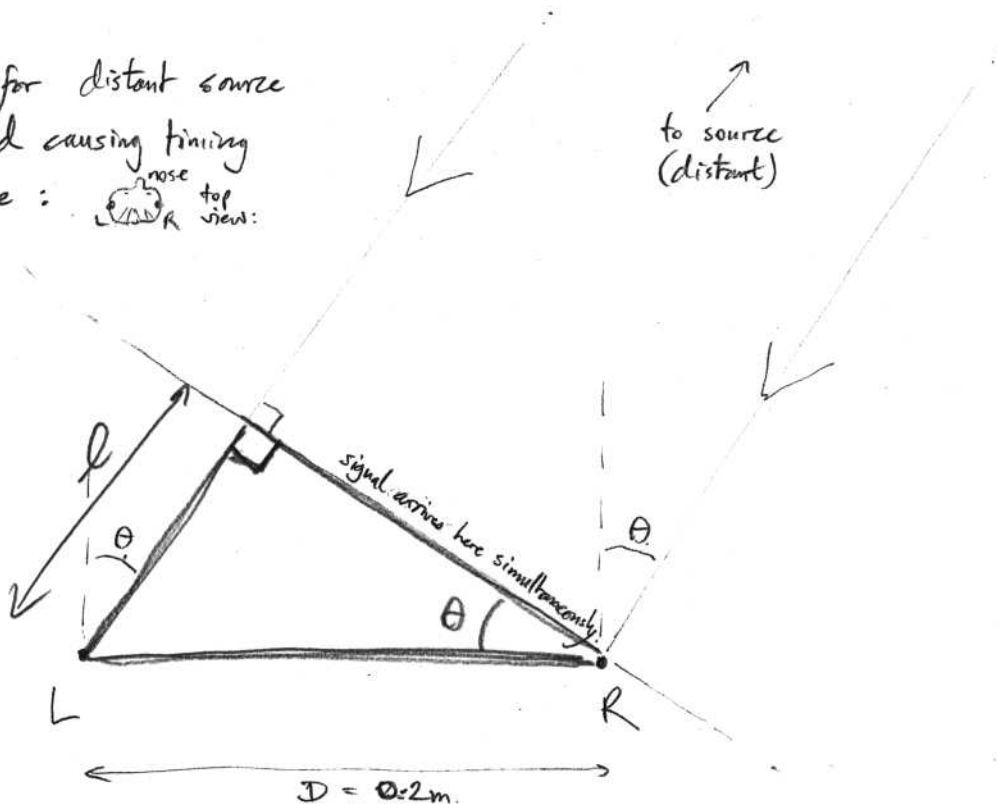 for distant source
d causing timing
e :
nose
L
R
top
view:
to source
(distant)
l
signal arrives here simultaneously.
θ
θ
θ
L
R
D = 0.2m.